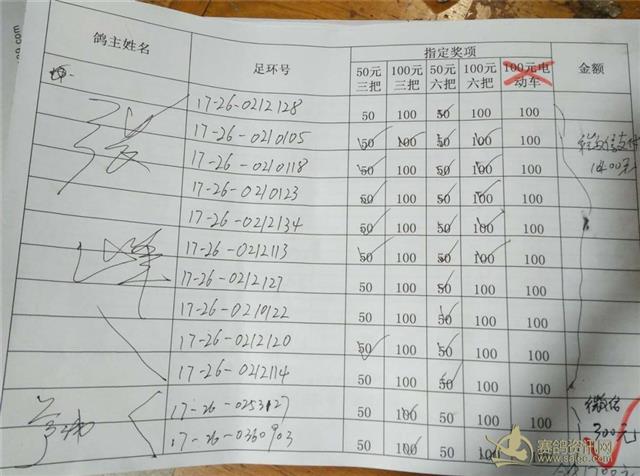 鸽主姓名 足环号 指定奖项 金额
50元三把 100元三把 50元六把 100元六把 100元电动车
17-26-0212128 50 100 50 100 100
张 17-26-0210105 50 100 50 100 100
17-26-0210118 50 100 50 100 100
1400元
17-26-0210123 50 100 50 100 100
17-26-0212134 50 100 50 100 100
峰 17-26-0212113 50 100 50 100 100
17-26-0212127 50 100 50 100 100
17-26-0210122 50 100 50 100 100
17-26-0212120 50 100 50 100 100
17-26-0212114 50 100 50 100 100
17-26-0253127 50 100 50 100 100
微信
300元
17-26-0360903 50 100 50 100 100
赛鸽资讯网
www.saige.com